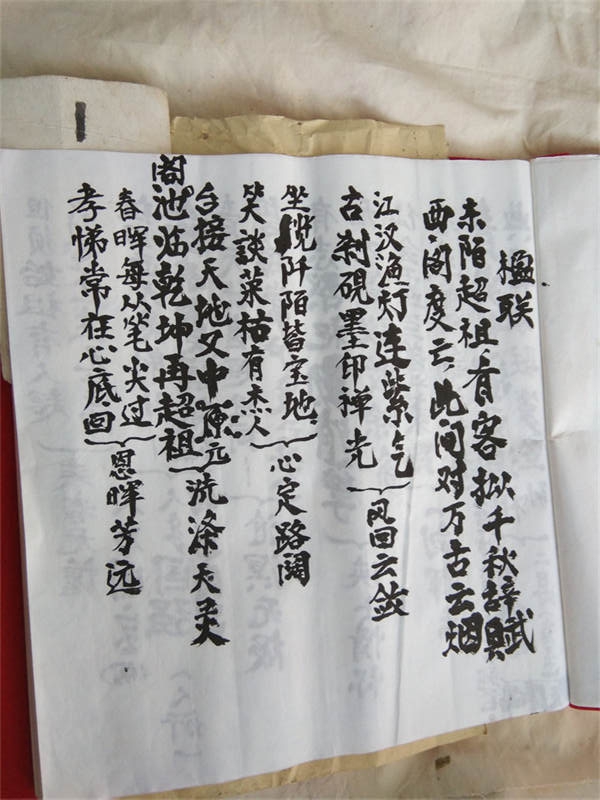 楹联
东陌超祖有客拟千秋辞赋
西阁度云此间对万古云烟
江汉渔灯连紫气
古刹砚墨印禅光
风回云敛
坐揽阡陌皆宝地
笑谈荣枯有杰人
心定路阔
台接天地又中元
阁池临乾坤再超祖
洗涤天灵
春晖每从笔尖过
孝悌常在心底回
恩晖芳远